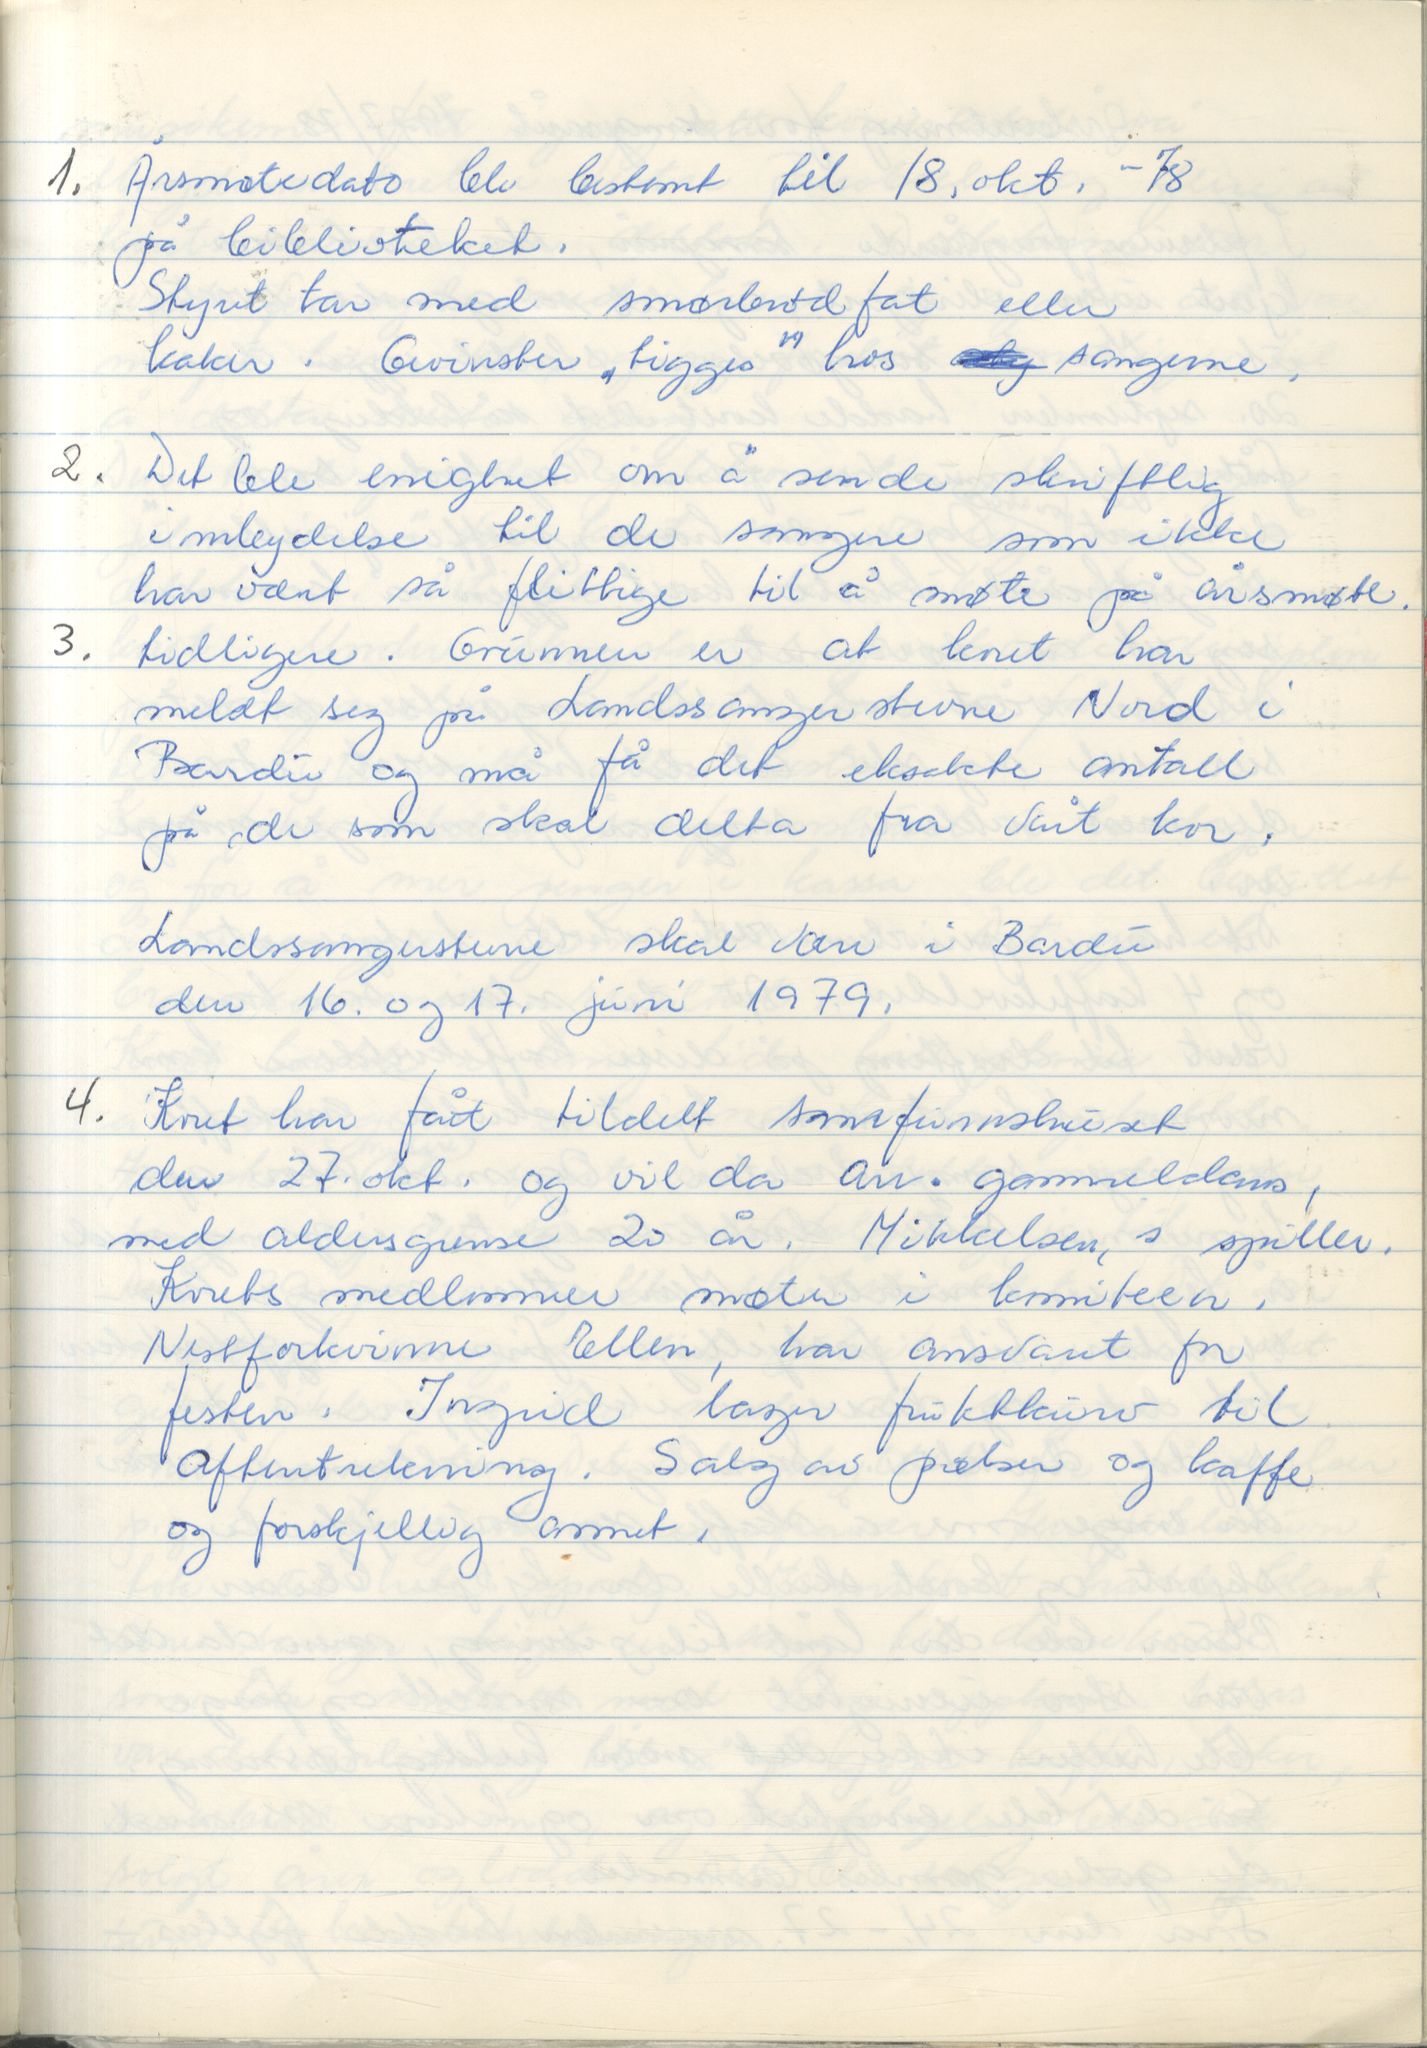 1. Årsmøtedato ble bestemt til 18. okt. -78
på biblioteket.
Styret tar med smørbrødfat eller
kaker. Gevinster „tigges" hos sangerne.
2. Det ble enighet om å sende skriftlig
innbydelse til de sangere som ikke
har vært så flittige til å møte på årsmøte.
3. tidligere. Grunnen er at koret har
meldt seg på Landssangerstevne Nord i
Bardu og må få det eksakte antall
på de som skal delta fra vårt kor.
Landssangerstevne skal være i Bardu
den 16. og 17. juni 1979.
4. Koret har fått tildelt samfunnshuset
den 27. okt. og vil da arr. gammeldans,
med aldersgrense 20 år. Mikkelsen,s spiller.
Korets medlemmer møter i komiteen.
Nestforkvinne Ellen, har ansvaret for
festen. Ingrid lager fruktkurv til
aftentrekning. Salg av pølser og kaffe
og forskjellig annet.